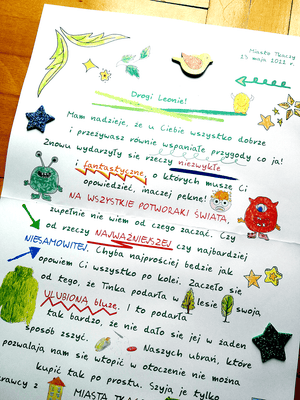 Miasto Tkaczy
23 maja 2022 r.
Drogi Leonie!
Mam nadzieję, że u Ciebie wszystko dobrze
i przeżywasz równie wspaniałe przygody co ja!
Znowu wydarzyły się rzeczy niezwykłe
i fantastyczne, o których muszę Ci
opowiedzieć, inaczej pęknę!
NA WSZYSTKIE POTWORAKI ŚWIATA,
zupełnie nie wiem od czego zacząć. Czy
od rzeczy NAJWAŻNIEJSZEJ czy najbardziej
NIESAMOWITEJ. Chyba najprościej będzie jak
opowiem Ci wszystko po kolei. Zaczęło się
od tego, że Tinka podarła w lesie swoją
ULUBIONĄ bluzę. I to podarła
tak bardzo, że nie dało się jej w żaden
sposób zszyć. Naszych ubrań, które
pozwalają nam się wtopić w otoczenie nie można
kupić tak po prostu. Szyją je tylko
krawcy z MIASTA